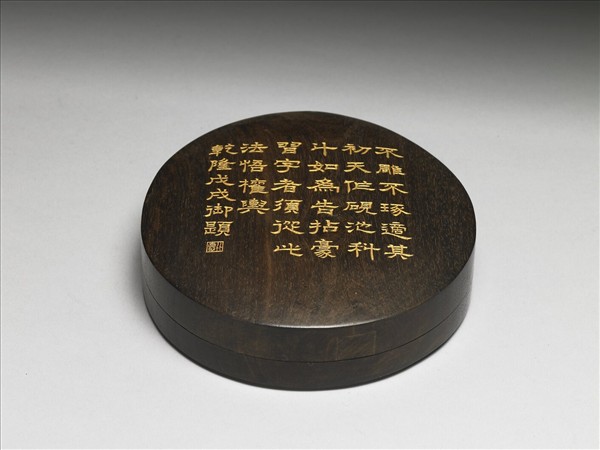 不雕不琢適其
初天作硯池科
斗如為告拈豪
習字者須從此
法悟權輿
乾隆戊戌御題